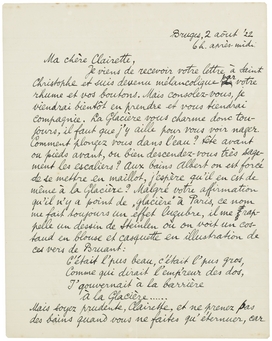 Bruges, 2 août '22
6 h. après-midi.
Ma chère Clairette,
Je viens de recevoir votre lettre à Saint
Christophe et suis devenu mélancolique par votre
rhume et vos boutons. Mais consolez-vous, je
viendrai bientôt en prendre et vous tiendrai
compagnie. La Glacière vous charme donc tou-
jours, il faut que j'y aille pour vous voir nager.
Comment plongez vous dans l'eau? Tête avant
ou pieds avant, ou bien descendez-vous très sage-
ment les escaliers? Aux bains Albert on est forcé
de se mettre en maillot, j'espère qu'il en est de
même à la Glacière? Malgré votre affirmation
qu'il n'y a point de „glacière" à Paris, ce nom
me fait toujours un effet lugubre, il me rap-
pelle un dessin de Steinlen où on voit un cos-
taud en blouse et casquette en illustration de
ces vers de Bruant:
C'était l'pus beau, c'était l'pus gros,
Comme qui dirait l'emp'reur des dos,
I' gouvernait à la barrière
À la Glacière......
Mais soyez prudente, Clairette, et ne prenez pas
des bains quand vous ne faites qu'éternuer, car